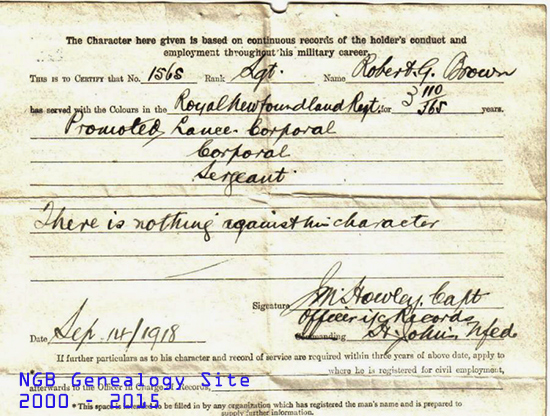 The Character here given is based on continuous records of the holder's conduct and
employment throughout his military career.
This is to Certify that No. 1565 Rank Sgt. Name Robert G. Brown
has served with the Colours in the Royal Newfoundland Regt. for 3 110/365 years.
Promoted Lance-Corporal
Corporal
Sergeant
There is nothing against his character
Signature J M Howley, Capt
Officer i/c Records
Date Sep. 14/1918 Commanding St. John's Nfld
If further particulars as to his character and record of service are required within three years of above date, apply to
* where he is registered for civil employment,
afterwards to the Officer in Charge of Records,
NGB Genealogy Site
2000 - 2015
* This space is intended to be filled in by any organization which has registered the man's name and is prepared to
supply further information.